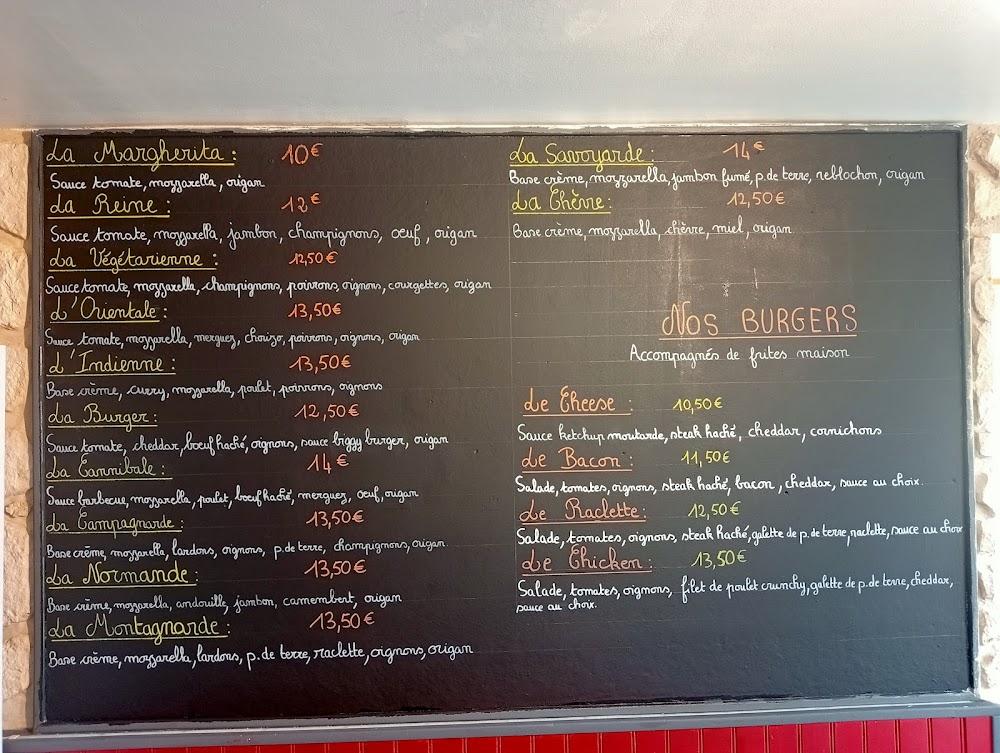 La Margherita : 10€
Sauce tomate, mozzarella, origan
La Reine : 12€
Sauce tomate, mozzarella, jambon, champignons, oeuf, origan
La Végétarienne : 12,50€
Sauce tomate, mozzarella, champignons, poivrons, oignons, courgettes, origan
L'Orientale : 13,50€
Sauce tomate, mozzarella, merguez, chorizo, poivrons, oignons, origan
L'Indienne : 13,50€
Base crème, curry, mozzarella, poulet, poivrons, oignons
La Burger : 12,50€
Sauce tomate, cheddar, boeuf haché, oignons, sauce biggy burger, origan
La Cannibale : 14€
Sauce barbecue, mozzarella, poulet, boeuf haché, merguez, oeuf, origan
La Campagnarde : 13,50€
Base crème, mozzarella, lardons, oignons, p. de terre, champignons, origan
La Normande : 13,50€
Base crème, mozzarella, andouille, jambon, camembert, origan
La Montagnarde : 13,50€
Base crème, mozzarella, lardons, p. de terre, raclette, oignons, origan
La Savoyarde : 14€
Base crème, mozzarella, jambon fumé, p. de terre, reblochon, origan
La Chèvre : 12,50€
Base crème, mozzarella, chèvre, miel, origan
Nos BURGERS
Accompagnés de frites maison
Le Cheese : 10,50€
Sauce ketchup moutarde, steak haché, cheddar, cornichons
Le Bacon : 11,50€
Salade, tomates, oignons, steak haché, bacon, cheddar, sauce au choix.
Le Raclette : 12,50€
Salade, tomates, oignons, steak haché, galette de p. de terre, raclette, sauce au choix
Le Chicken : 13,50€
Salade, tomates, oignons, filet de poulet crunchy, galette de p. de terre, cheddar,
sauce au choix.